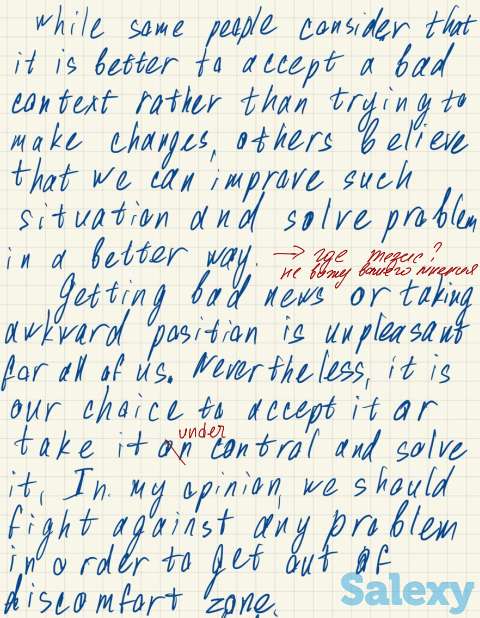 While some people consider that
it is better to accept a bad
context rather than trying to
make changes, others believe
that we can improve such
situation and solve problem
in a better way. → где тезис?
не вижу вашего мнения
Getting bad news or taking
awkward position is unpleasant
for all of us. Nevertheless, it is
our choice to accept it or
under
take it on control and solve
it. In my opinion, we should
fight against any problem
in order to get out of
discomfort zone.
Salexy